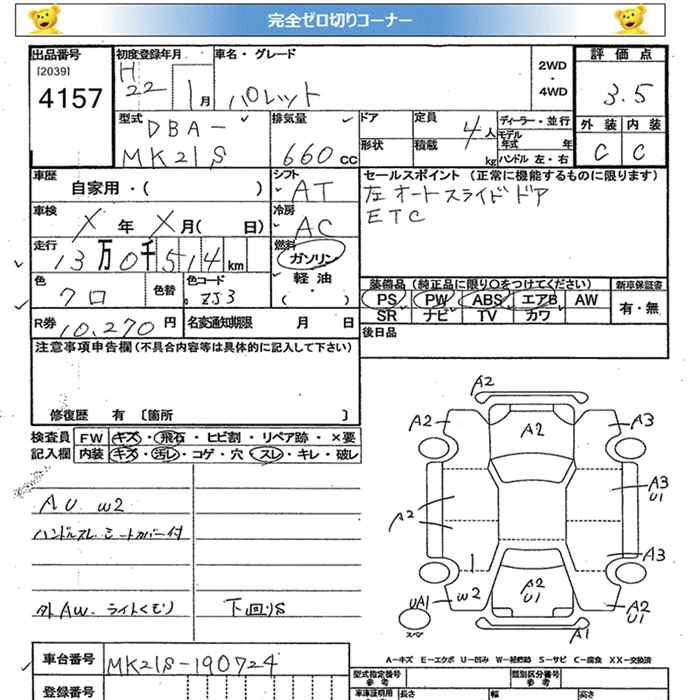 完全ゼロ切りコーナー
出品番号 初度登録年月 車名・グレード
[2039] H 22 1月 パレット 2WD・4WD 評価点 3.5
4157
型式 DBA-MK21S 排気量 660cc ドア 定員 4人 ディーラー・並行 外装 内装
形状 積載 kg モデル年式 年 ハンドル 左・右 C C
車歴 自家用・( ) シフト AT セールスポイント(正常に機能するものに限ります)
左オートスライドドア
車検 X年 X月( 日) 冷房 AC ETC
走行 13万0千514km 燃料 ガソリン・軽油・( )
色 クロ 色替 色コード ZJ3 装備品(純正品に限り○をつけてください) 新車保証書
PS PW ABS エアB AW 有・無
R券 10,270円 名変通知期限 月 日 SR ナビ TV カワ
注意事項申告欄(不具合内容等は具体的に記入して下さい) 後日品
修復歴 有 〔箇所 〕
検査員 FW キズ・飛石・ヒビ割・リペア跡・×要
記入欄 内装 キズ・汚レ・コゲ・穴・スレ・キレ・破レ
AU W2
ハンドルスレ シートカバー付
外AW. ライトくもり 下回りS
A2
A2 A2 A3
A2 A3 U1
A3
UA1 W2 A2 U1 A2 U1
スペア A1
A-キズ E-エクボ U-凹み W-補修跡 S-サビ C-腐食 XX-交換済
車台番号 MK21S-190724
型式指定番号 参考 類別区分番号 参考
登録番号 車庫証明用 長さ 幅 高さ